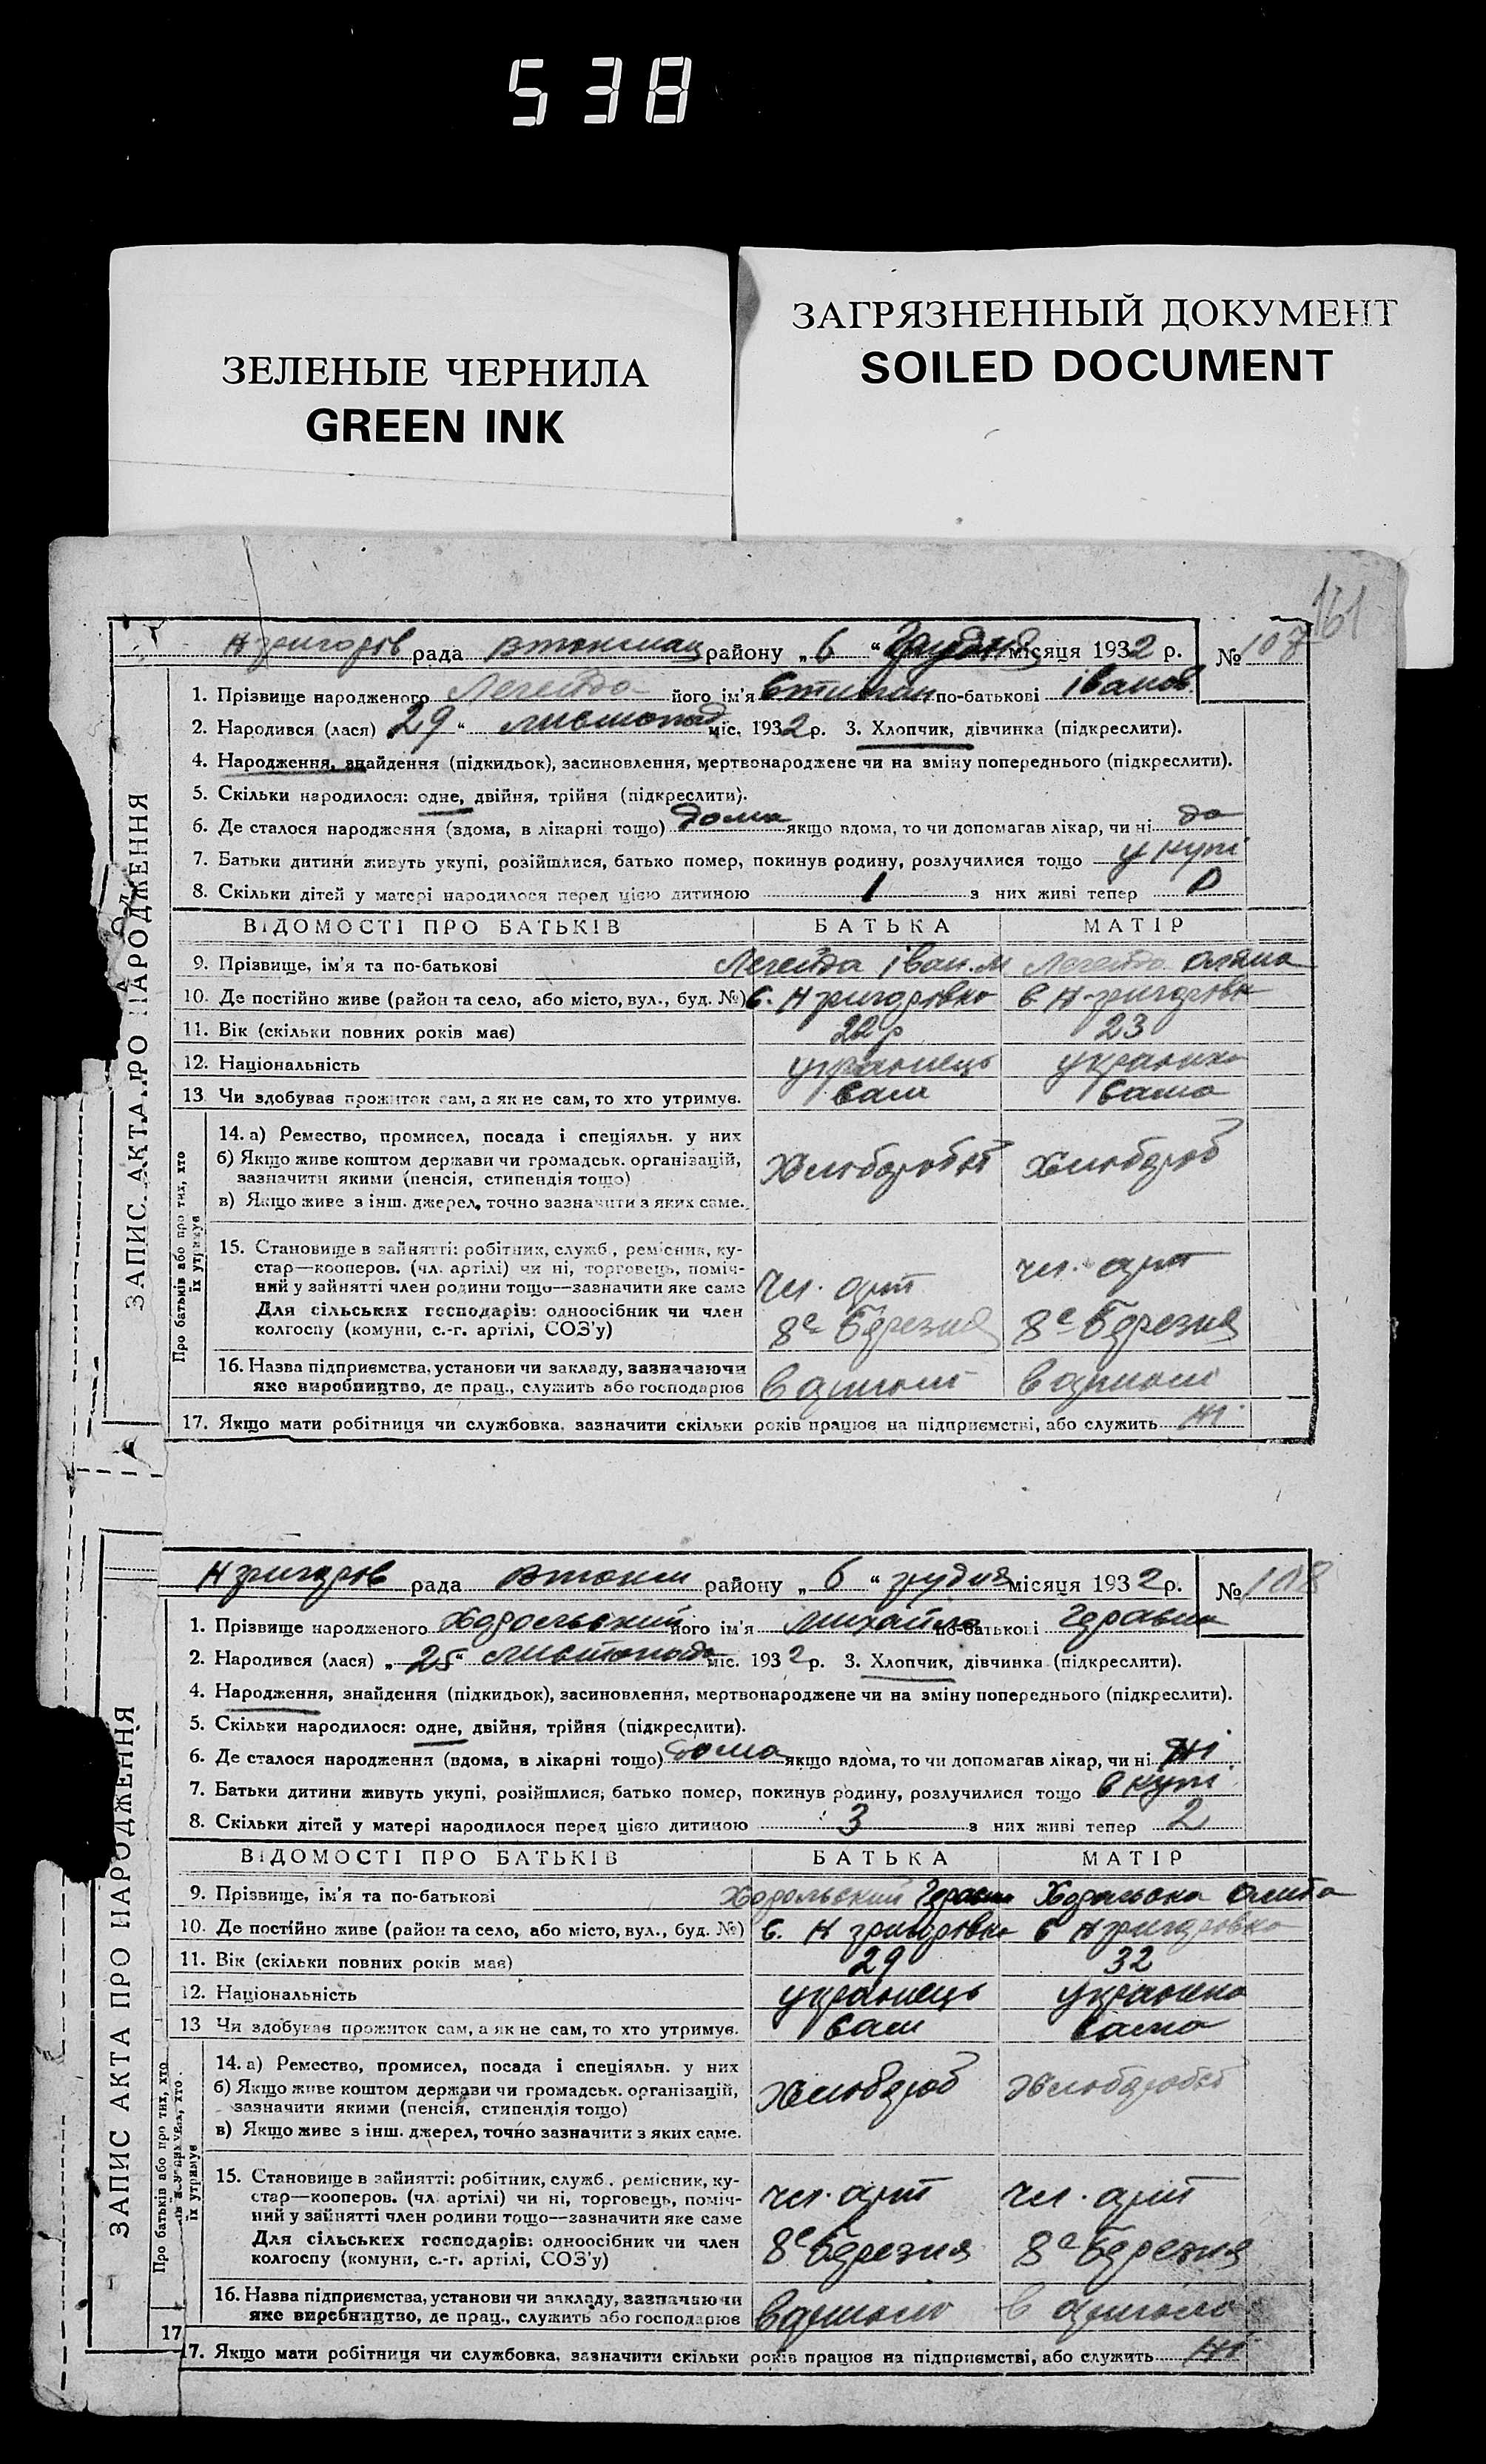 538
ЗЕЛЕНЫЕ ЧЕРНИЛА
GREEN INK
ЗАГРЯЗНЕННЫЙ ДОКУМЕНТ
SOILED DOCUMENT
161
ЗАПИС АКТА ПРО НАРОДЖЕННЯ
Н григорів рада району „ 6 “ Грудня місяця 1932 р. № 107
1. Прізвище народженого Легейда його ім'я по-батькові Іванов
2. Народився (лася) 29 “ листопад міс. 1932 р. 3. Хлопчик, дівчинка (підкреслити).
4. Народження, знайдення (підкидьок), засиновлення, мертвонароджене чи на зміну попереднього (підкреслити).
5. Скільки народилося: одне, двійня, трійня (підкреслити).
6. Де сталося народження (вдома, в лікарні тощо) дома якщо вдома, то чи допомагав лікар, чи ні да
7. Батьки дитини живуть укупі, розійшлися, батько помер, покинув родину, розлучилися тощо у купі
8. Скільки дітей у матері народилося перед цією дитиною 1 з них живі тепер 0
ВІДОМОСТІ ПРО БАТЬКІВ БАТЬКА МАТІР
9. Прізвище, ім'я та по-батькові Легейда Іван. М Легейда
10. Де постійно живе (район та село, або місто, вул., буд. №) с. Н григорівка с Н-григорівк
11. Вік (скільки повних років має) 22 р 23
12. Національність українець українка
13. Чи здобував прожиток сам, а як не сам, то хто утримує. сам сама
Про батьків або про тих, хто їх утримує
14. а) Ремество, промисел, посада і спеціяльн. у них
б) Якщо живе коштом держави чи громадськ. організацій,
зазначити якими (пенсія, стипендія тощо) Хлібороб
в) Якщо живе з інш. джерел, точно зазначити з яких саме.
15. Становище в зайнятті: робітник, служб., ремісник, ку-
стар—кооперов. (чл. артілі) чи ні, торговець, поміч-
ний у зайнятті член родини тощо—зазначити яке саме чл. арт чл. арт
Для сільських господарів: одноосібник чи член
колгоспу (комуни, с.-г. артілі, СОЗ'у) 8е Березня 8е Березня
16. Назва підприємства, установи чи закладу, зазначаючи
яке виробництво, де прац., служить або господарює в артілі в артілі
17. Якщо мати робітниця чи службовка, зазначити скільки років працює на підприємстві, або служить ні
ЗАПИС АКТА ПРО НАРОДЖЕННЯ
Н григорів рада району „ 6 “ грудня місяця 1932 р. № 108
1. Прізвище народженого Хорольский його ім'я Михайло по-батькові Герасим
2. Народився (лася) „ 25 “ листопада міс. 1932 р. 3. Хлопчик, дівчинка (підкреслити).
4. Народження, знайдення (підкидьок), засиновлення, мертвонароджене чи на зміну попереднього (підкреслити).
5. Скільки народилося: одне, двійня, трійня (підкреслити).
6. Де сталося народження (вдома, в лікарні тощо) дома якщо вдома, то чи допомагав лікар, чи ні ні
7. Батьки дитини живуть укупі, розійшлися, батько помер, покинув родину, розлучилися тощо в купі
8. Скільки дітей у матері народилося перед цією дитиною 3 з них живі тепер 2
ВІДОМОСТІ ПРО БАТЬКІВ БАТЬКА МАТІР
9. Прізвище, ім'я та по-батькові Хорольский Герасим Хорольска
10. Де постійно живе (район та село, або місто, вул., буд. №) с. Н григорівка с Н григорівка
11. Вік (скільки повних років має) 29 32
12. Національність українець українка
13 Чи здобував прожиток сам, а як не сам, то хто утримує. сам сама
Про батьків або про тих, хто їх утримує
14. а) Ремество, промисел, посада і спеціяльн. у них
б) Якщо живе коштом держави чи громадськ. організацій,
зазначити якими (пенсія, стипендія тощо) Хлібороб
в) Якщо живе з інш. джерел, точно зазначити з яких саме.
15. Становище в зайнятті: робітник, служб., ремісник, ку-
стар—кооперов. (чл. артілі) чи ні, торговець, поміч-
ний у зайнятті член родини тощо—зазначити яке саме чл. арт чл. арт
Для сільських господарів: одноосібник чи член
колгоспу (комуни, с.-г. артілі, СОЗ'у) 8е Березня 8е Березня
16. Назва підприємства, установи чи закладу, зазначаючи
яке виробництво, де прац., служить або господарює в артілі в артілі
17
17. Якщо мати робітниця чи службовка, зазначити скільки років працює на підприємстві, або служить ні